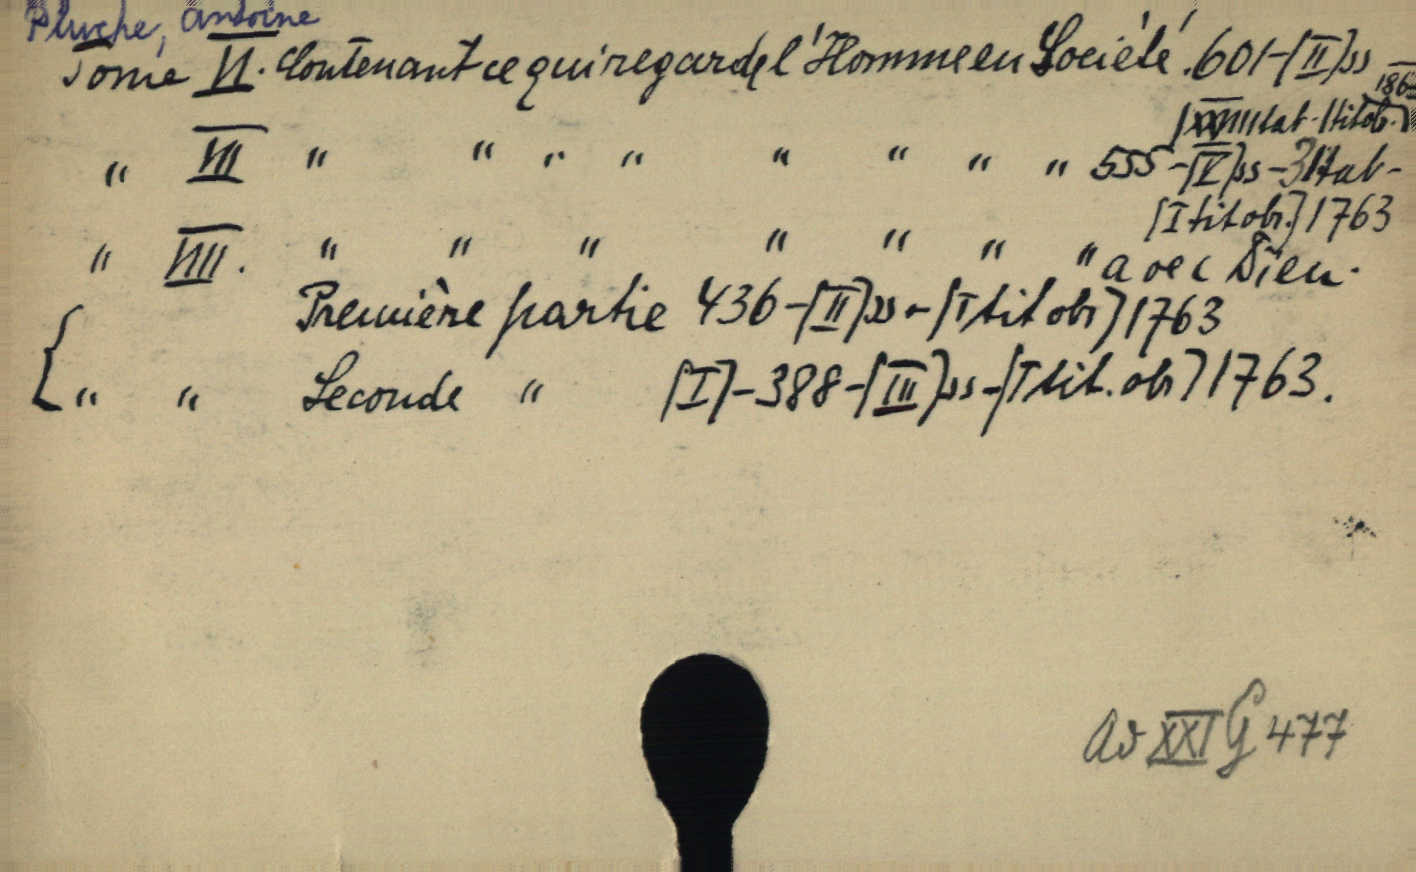 Pluche, Antoine
Tome VI. Contenant ce qui regarde l'Homme en Société. 601-[II]ss
tab. [I titobr.]
" VII " " " " " " " " 555-[V]ss-31tab-
[I titobr.] 1763
" VIII. " " " " " " " avec Dieu.
Première partie 436-[II]ss-[I tit obr] 1763
{ " " Seconde " [I]-388-[III]ss-[I tit. obr] 1763.
Ad XXI G 477